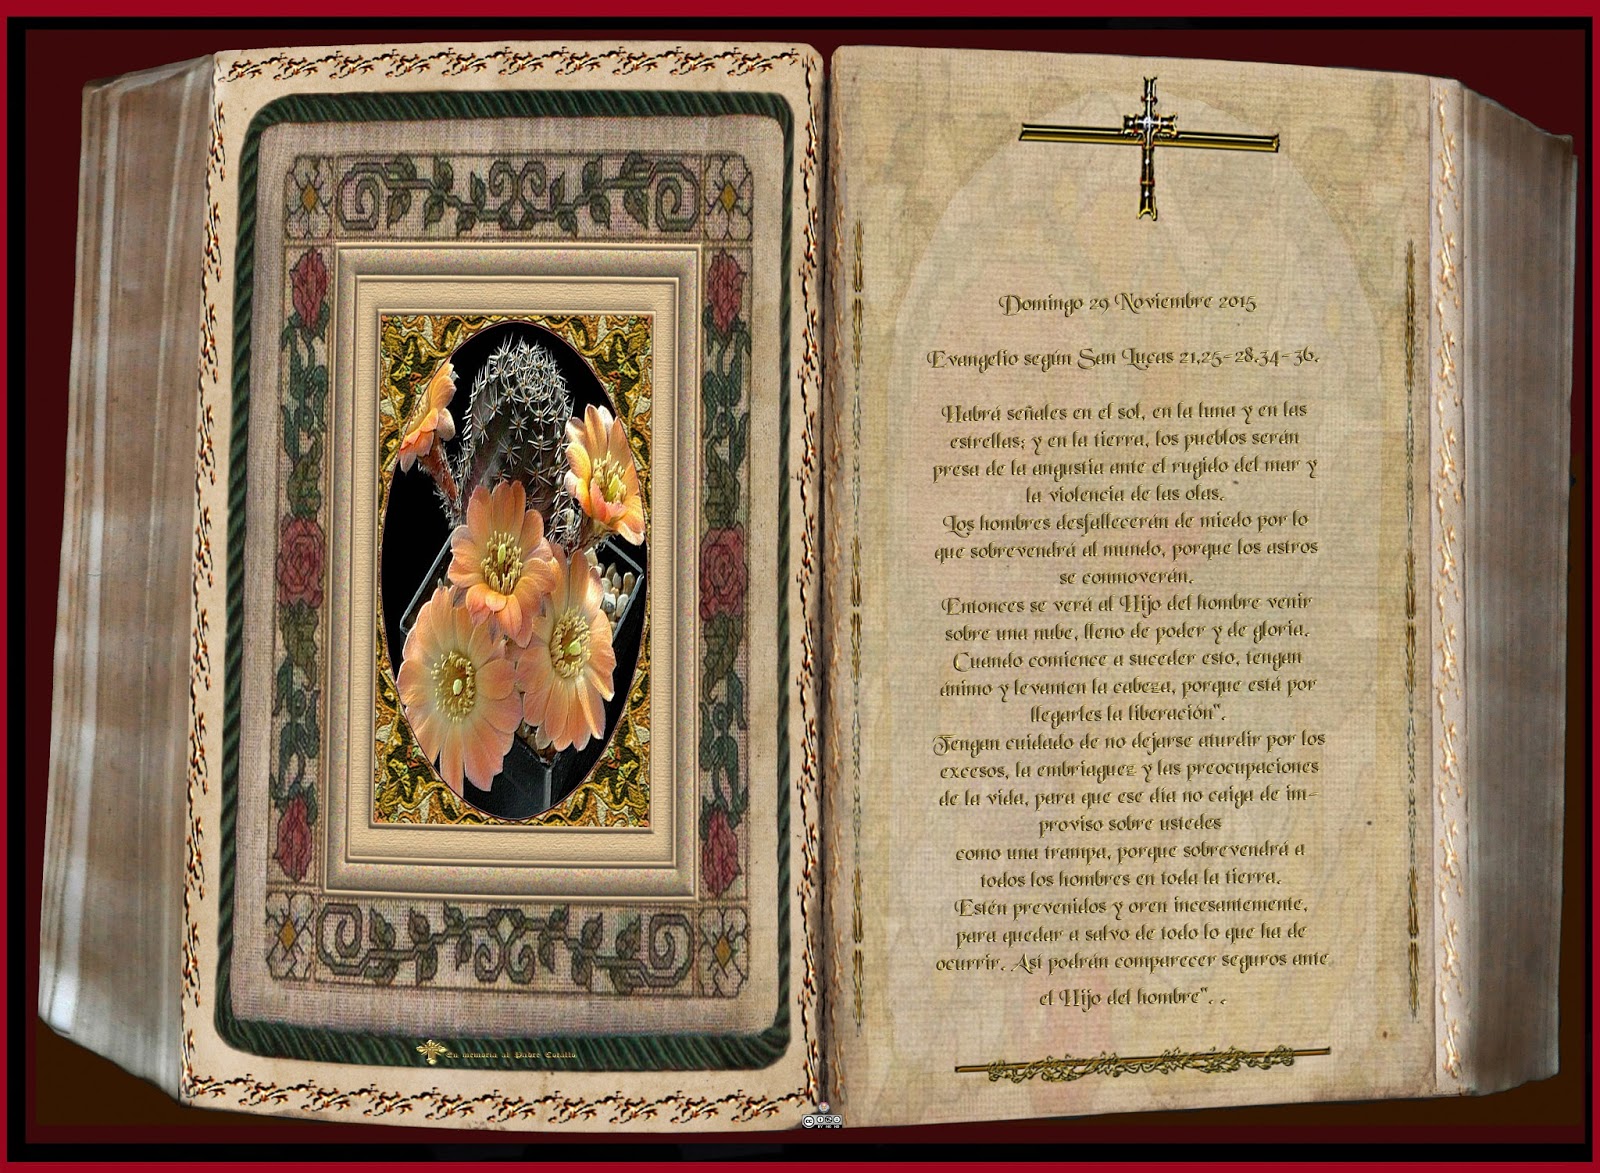 En memoria al Padre Cotallo
Domingo 29 Noviembre 2015
Evangelio según San Lucas 21,25-28.34-36.
Habrá señales en el sol, en la luna y en las
estrellas; y en la tierra, los pueblos serán
presa de la angustia ante el rugido del mar y
la violencia de las olas.
Los hombres desfallecerán de miedo por lo
que sobrevendrá al mundo, porque los astros
se conmoverán.
Entonces se verá al Hijo del hombre venir
sobre una nube, lleno de poder y de gloria.
Cuando comience a suceder esto, tengan
ánimo y levanten la cabeza, porque está por
llegarles la liberación".
Tengan cuidado de no dejarse aturdir por los
excesos, la embriaguez y las preocupaciones
de la vida, para que ese día no caiga de im-
proviso sobre ustedes
como una trampa, porque sobrevendrá a
todos los hombres en toda la tierra.
Estén prevenidos y oren incesantemente,
para quedar a salvo de todo lo que ha de
ocurrir. Así podrán comparecer seguros ante
el Hijo del hombre". .
cc
BY NC ND